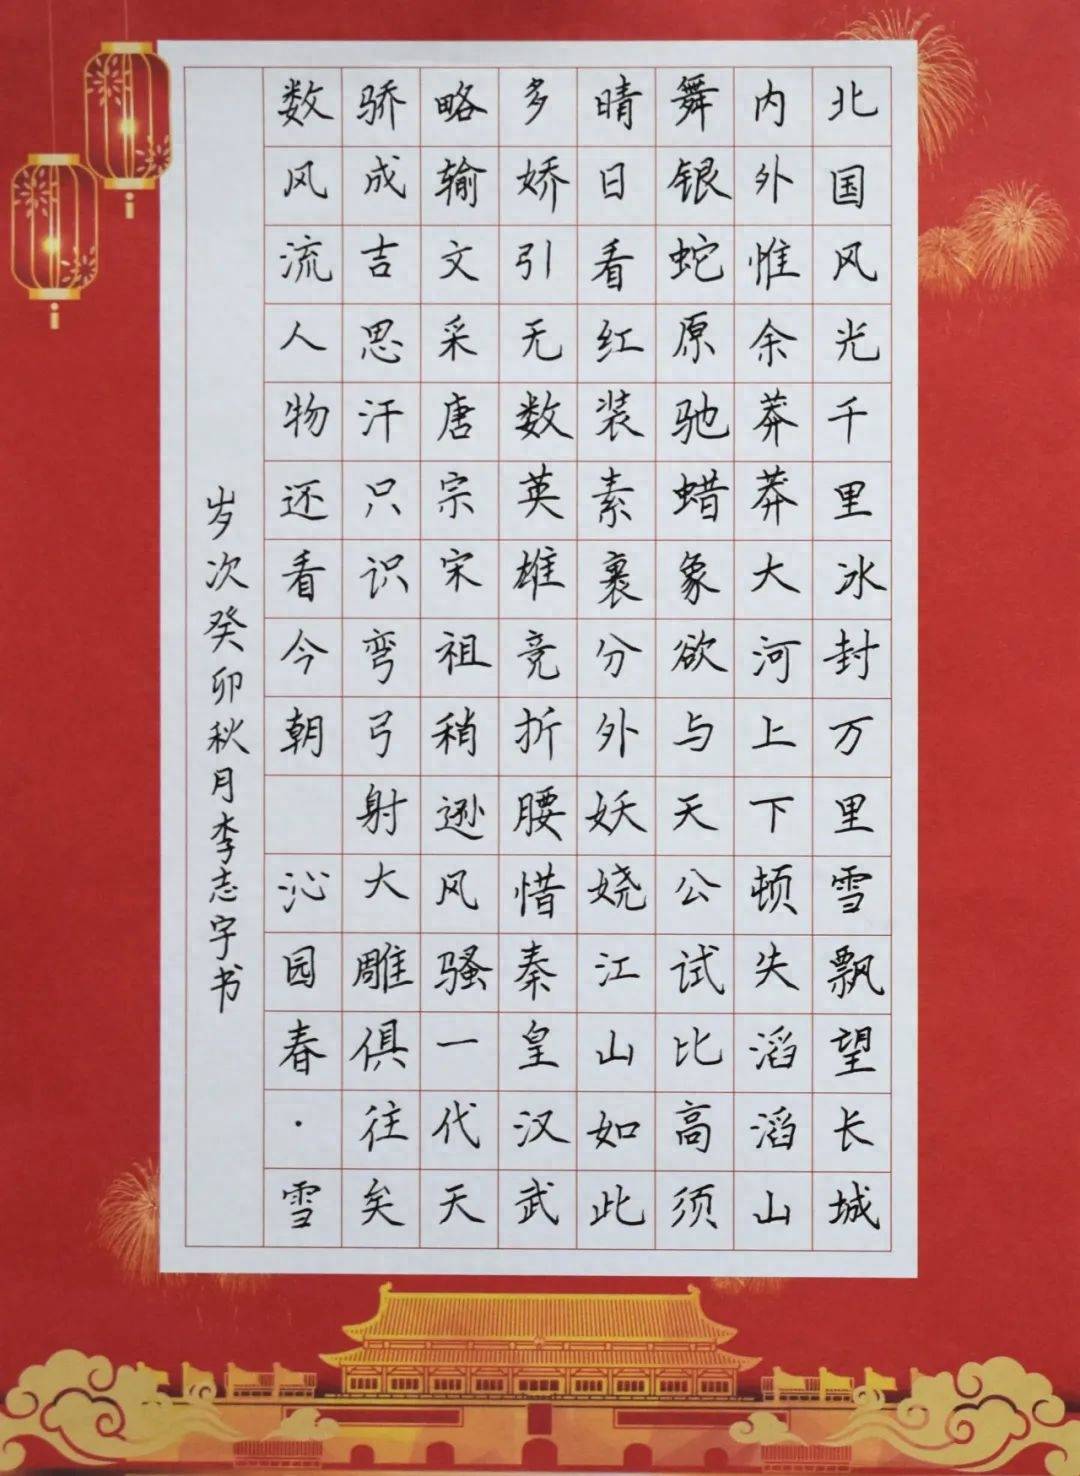 北国风光千里冰封万里雪飘望长城
内外惟余莽莽大河上下顿失滔滔山
舞银蛇原驰蜡象欲与天公试比高须
晴日看红装素裹分外妖娆江山如此
多娇引无数英雄竞折腰惜秦皇汉武
略输文采唐宗宋祖稍逊风骚一代天
骄成吉思汗只识弯弓射大雕俱往矣
数风流人物还看今朝 沁园春·雪
岁次癸卯秋月李志宇书